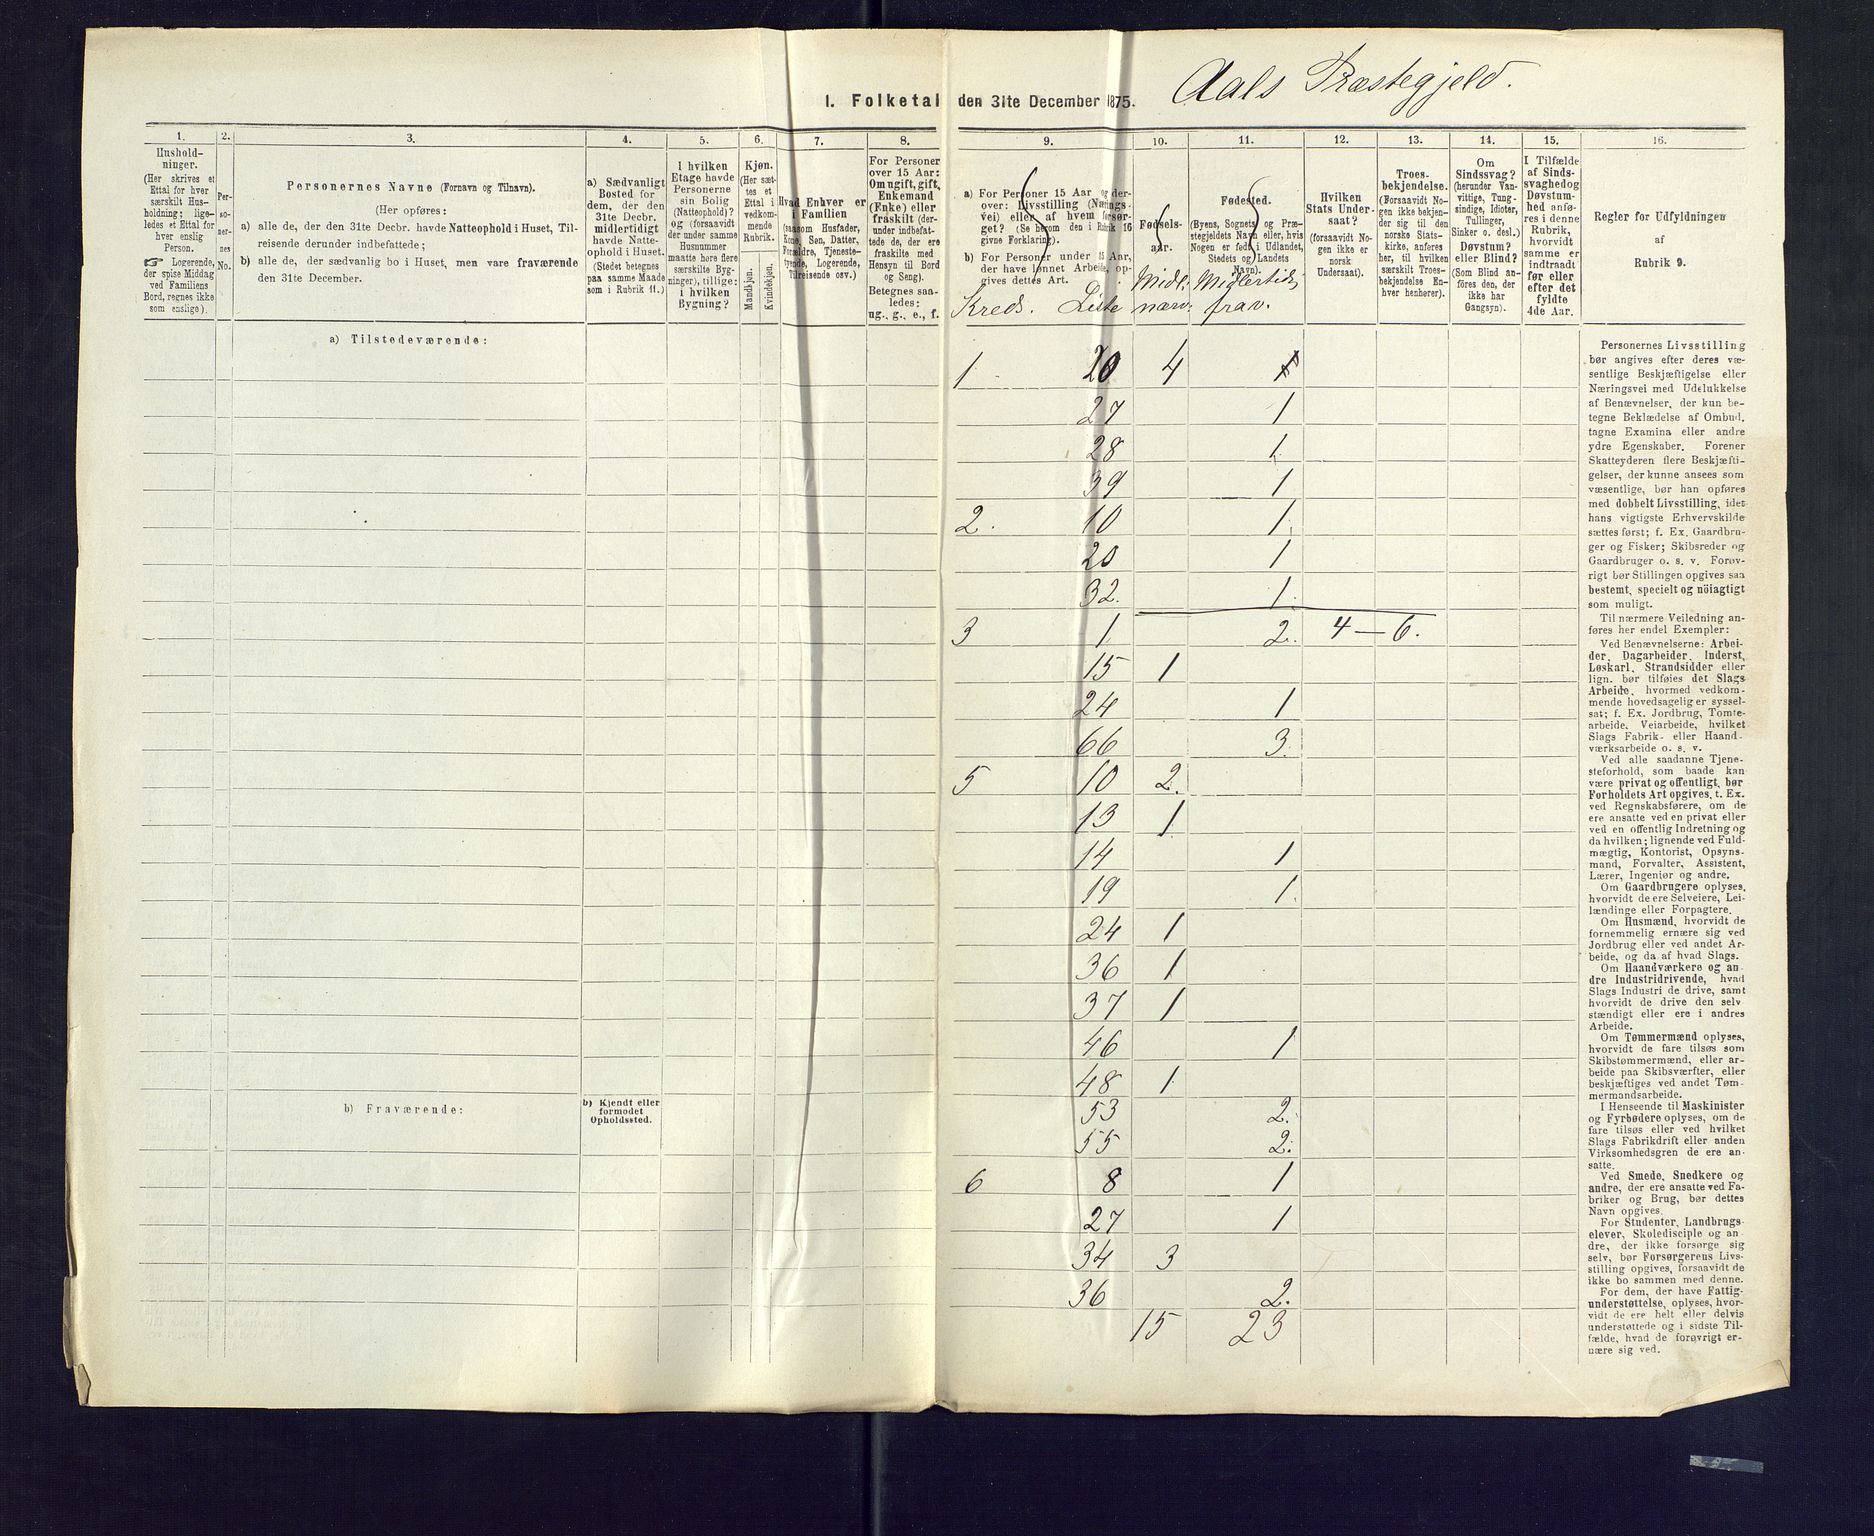 Aals Præstegjeld.
1. Folketal den 31te December 1875.
1.
Hushold-
ninger.
(Her skrives et
Ettal for hver
særskilt Hus-
holdning; lige-
ledes et Ettal for
hver enslig
Person.
☞ Logerende,
der spise Middag
ved Familiens
Bord, regnes ikke
som enslige).
2.
Per-
so-
ner-
nes
No.
3.
Personernes Navne (Fornavn og Tilnavn).
(Her opføres:
a) alle de, der den 31te Decbr. havde Natteophold i Huset, Til-
reisende derunder indbefattede;
b) alle de, der sædvanlig bo i Huset, men vare fraværende
den 31te December.
4.
a) Sædvanligt
Bosted for
dem, der den
31te Decbr.
midlertidigt
havde Natte-
ophold i Huset.
(Stedet betegnes
paa samme Maade
som i Rubrik 11.)
5.
I hvilken
Etage havde
Personerne
sin Bolig
(Natteophold)?
og (forsaavidt
der under samme
Husnummer
maatte høre flere
særskilte Byg-
ninger), tillige:
i hvilken
Bygning?
6.
Kjøn.
(Her sæt-
tes et
Ettal i
vedkom-
mende
Rubrik.
Mandkjøn.
Kvindekjøn.
7.
Hvad Enhver er
i Familien
(saasom Husfader,
Kone, Søn, Datter,
Forældre, Tjeneste-
tyende, Logerende,
Tilreisende osv.)
8.
For Personer
over 15 Aar:
Om ugift, gift,
Enkemand
(Enke) eller
fraskilt (der-
under indbefat-
tede de, der ere
fraskilte med
Hensyn til Bord
og Seng).
Betegnes saa-
ledes:
ug., g., e., f.
9.
a) For Personer 15 Aar og der-
over: Livsstilling (Nærings-
vei) eller af hvem forsør-
get? (Se herom den i Rubrik 16
givne Forklaring).
b) For Personer under 15 Aar,
der have lønnet Arbeide, op-
gives dettes Art.
Kreds. Liste
10.
Fødsels-
aar.
Midl:
nærv:
11.
Fødested.
(Byens, Sognets eller Præ-
stegjeldets Navn eller, hvis
Nogen er født i Udlandet,
Stedets og Landets
Navn).
Midlertid.
frav.
12.
Hvilken
Stats Under-
saat?
(forsaavidt No-
gen ikke er
norsk
Undersaat).
13.
Troes-
bekjendelse.
(Forsaavidt No-
gen ikke bekjen-
der sig til den
norske Stats-
kirke, anføres
her, til hvilken
særskilt Troes-
bekjendelse En-
hver henhører).
14.
Om
Sindssvag?
(herunder Van-
vittige, Tung-
sindige, Idioter,
Tullinger,
Sinker o. desl.)
Døvstum?
eller Blind?
(Som Blind an-
føres den, der
ikke har
Gangsyn).
15.
I Tilfælde
af Sinds-
svaghed og
Døvstum-
hed anfø-
res i denne
Rubrik,
hvorvidt
samme er
indtraadt
før eller
efter det
fyldte
4de Aar.
16.
Regler for Udfyldningen
af
Rubrik 9.
a) Tilstedeværende:
1 20 4
27 1
28 1
39 1
2. 10 1
20 1
32. 1
3 1 2. 4 — 6.
15 1
24 1
66 3
5 10 2.
13 1
14 1
19 1
24 1
36 1
37 1
46 1
48 1
53 2.
55 2.
6 8 1
27 1
34 3
36 2.
15 23
b) Fraværende:
b) Kjendt eller
formodet
Opholdssted.
Personernes Livsstilling
bør angives efter deres væ-
sentlige Beskjæftigelse eller
Næringsvei med Udelukkelse
af Benævnelser, der kun be-
tegne Beklædelse af Ombud,
tagne Examina eller andre
ydre Egenskaber. Forener
Skatteyderen flere Beskjæfti-
gelser, der kunne ansees som
væsentlige, bør han opføres
med dobbelt Livsstilling, idet
hans vigtigste Erhvervskilde
sættes først; f. Ex. Gaardbru-
ger og Fisker; Skibsreder og
Gaardbruger o. s. v. Forøv-
rigt bør Stillingen opgives saa
bestemt, specielt og nøiagtigt
som muligt.
Til nærmere Veiledning an-
føres her endel Exempler:
Ved Benævnelserne: Arbei-
der, Dagarbeider, Inderst,
Løskarl, Strandsidder eller
lign. bør tilføies det Slags
Arbeide, hvormed vedkom-
mende hovedsagelig er syssel-
sat; f. Ex. Jordbrug, Tomte-
arbeide, Veiarbeide, hvilket
Slags Fabrik- eller Haand-
værksarbeide o. s. v.
Ved alle saadanne Tjene-
steforhold, som baade kan
være privat og offentligt, bør
Forholdets Art opgives, t. Ex.
ved Regnskabsførere, om de
ere ansatte ved en privat eller
ved en offentlig Indretning og
da hvilken; lignende ved Fuld-
mægtig, Kontorist, Opsyns-
mand, Forvalter, Assistent,
Lærer, Ingeniør og andre.
Om Gaardbrugere oplyses,
hvorvidt de ere Selveiere, Lei-
lændinge eller Forpagtere.
Om Husmænd, hvorvidt de
fornemmelig ernære sig ved
Jordbrug eller ved andet Ar-
beide, og da af hvad Slags.
Om Haandværkere og an-
dre Industridrivende, hvad
Slags Industri de drive, samt
hvorvidt de drive den selv
stændigt eller ere i andres
Arbeide.
Om Tømmermænd oplyses,
hvorvidt de fare tilsøs som
Skibstømmermænd, eller ar-
beide paa Skibsværfter, eller
beskjæftiges ved andet Tøm-
mermandsarbeide.
I Henseende til Maskinister
og Fyrbødere oplyses, om de
fare tilsøs eller ved hvilket
Slags Fabrikdrift eller anden
Virksomhedsgren de ere an-
satte.
Ved Smede, Snedkere og
andre, der ere ansatte ved Fa-
briker og Brug, bør dettes
Navn opgives.
For Studenter, Landbrugs-
elever, Skoledisciple og an-
dre, der ikke forsørge sig
selv, bør Forsørgerens Livs-
stilling opgives, forsaavidt de
ikke bo sammen med denne.
For dem, der have Fattig-
understøttelse, oplyses, hvor-
vidt de ere helt eller delvis
understøttede og i sidste Til-
fælde, hvad de forøvrigt er-
nære sig ved.